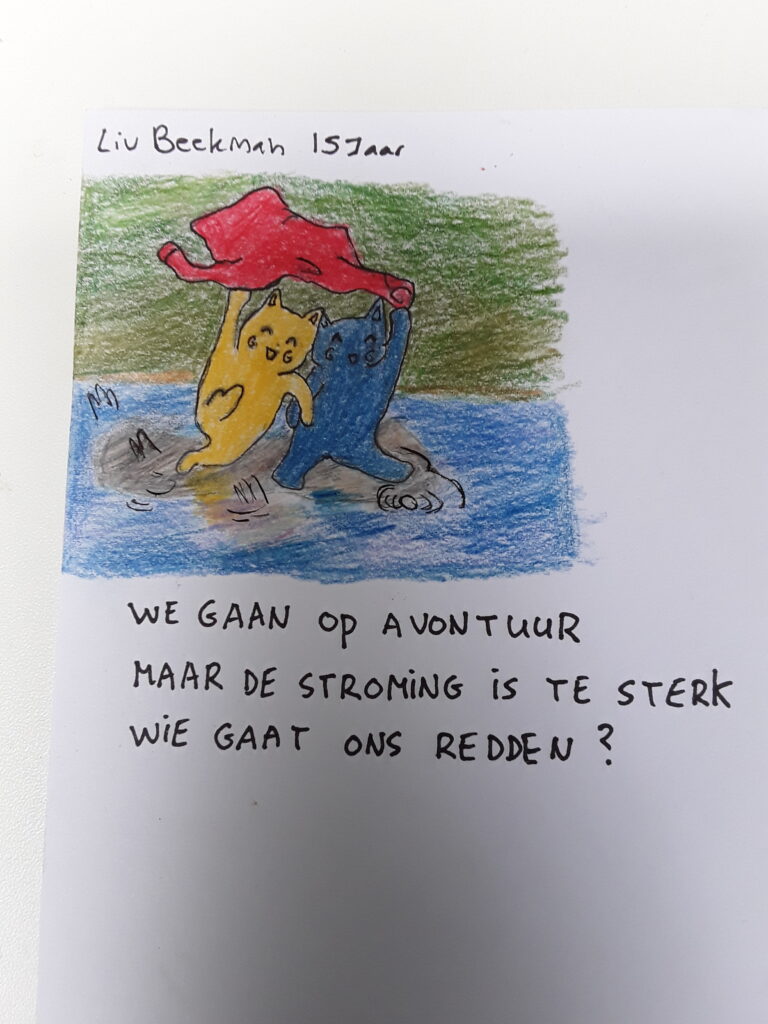 Liv Beekman 15 Jaar
WE GAAN op AVONTUUR
MAAR DE STROMING is TE STERK
WiE GAAT ONS REDDEN ?